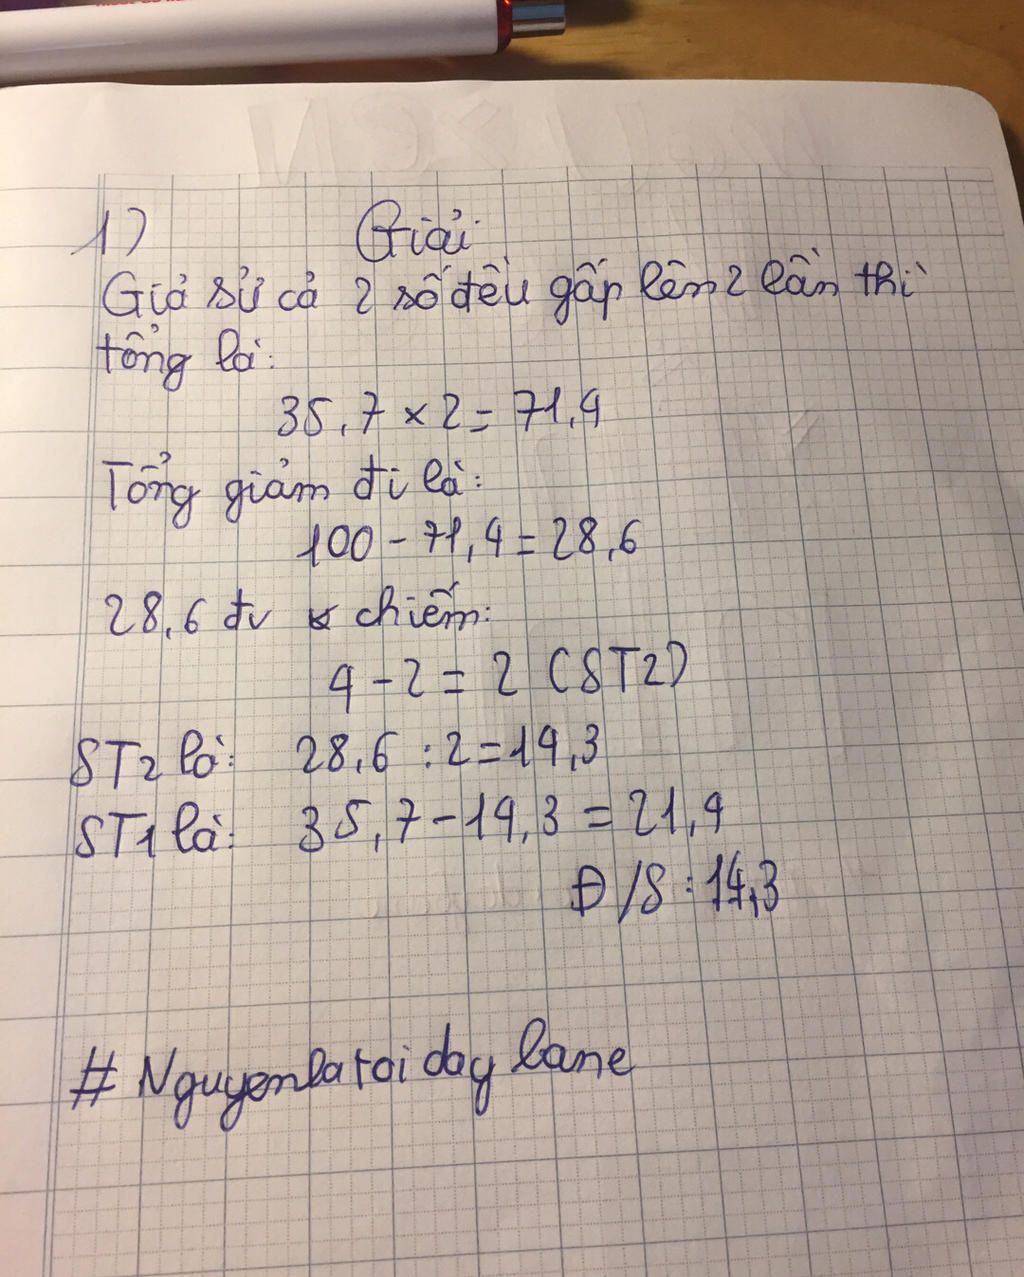 1) Giải
Giả sử cả 2 số đều gấp lên 2 lần thì
tổng là:
35,7 × 2 = 71,4
Tổng giảm đi là:
100 - 71,4 = 28,6
28,6 đv chiếm:
4 - 2 = 2 (ST2)
ST2 là: 28,6 : 2 = 14,3
ST1 là: 35,7 - 14,3 = 21,4
Đ/S : 14,3
# Nguyenlatoi day lane